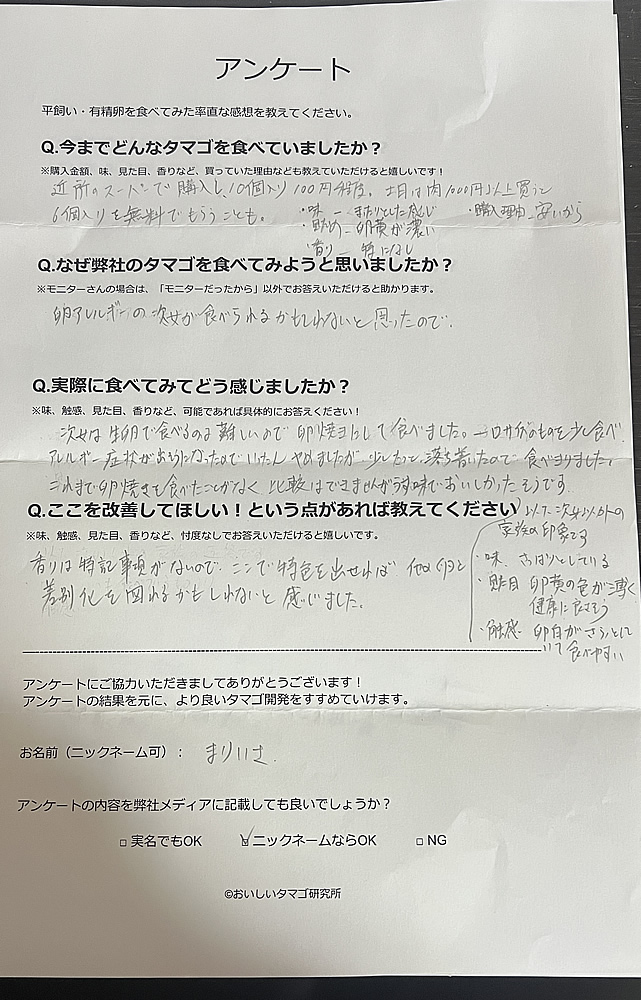 アンケート
平飼い・有精卵を食べてみた率直な感想を教えてください。
Q.今までどんなタマゴを食べていましたか？
※購入金額、味、見た目、香りなど、買っていた理由なども教えていただけると嬉しいです！
近所のスーパーで購入し、10個入り100円程度。土日は肉1000円以上買うと
6個入りを無料でもらうことも。
・味 ― まったりとした感じ
・見た目 ― 卵黄が濃い
・香り ― 特になし
・購入理由 ― 安いから
Q.なぜ弊社のタマゴを食べてみようと思いましたか？
※モニターさんの場合は、「モニターだったから」以外でお答えいただけると助かります。
卵アレルギーの次女が食べられるかもしれないと思ったので。
Q.実際に食べてみてどう感じましたか？
※味、触感、見た目、香りなど、可能であれば具体的にお答えください！
次女は生卵で食べるのは難しいので卵焼きにして食べました。一口サイズのものを少し食べ
アレルギー症状がありそうになったのでいったんやめましたが、少したつと落ち着いたので食べきりました。
これまで卵焼きを食べたことがなく比較はできませんがうす味でおいしかったそうです。
Q.ここを改善してほしい！という点があれば教えてください
※味、触感、見た目、香りなど、忖度なしでお答えいただけると嬉しいです。
香りは特記事項がないので、ここで特色を出せれば他の卵と
差別化を図れるかもしれないと感じました。
以下、次女以外の
家族の印象です
・味 さっぱりとしている
・見た目 卵黄の色が薄く
健康に良さそう
・触感 卵白がさらっとして
いて食べやすい
アンケートにご協力いただきましてありがとうございます！
アンケートの結果を元に、より良いタマゴ開発をすすめていけます。
お名前（ニックネーム可）： まりいさ
アンケートの内容を弊社メディアに記載しても良いでしょうか？
□ 実名でもOK ☑ニックネームならOK □ NG
©おいしいタマゴ研究所